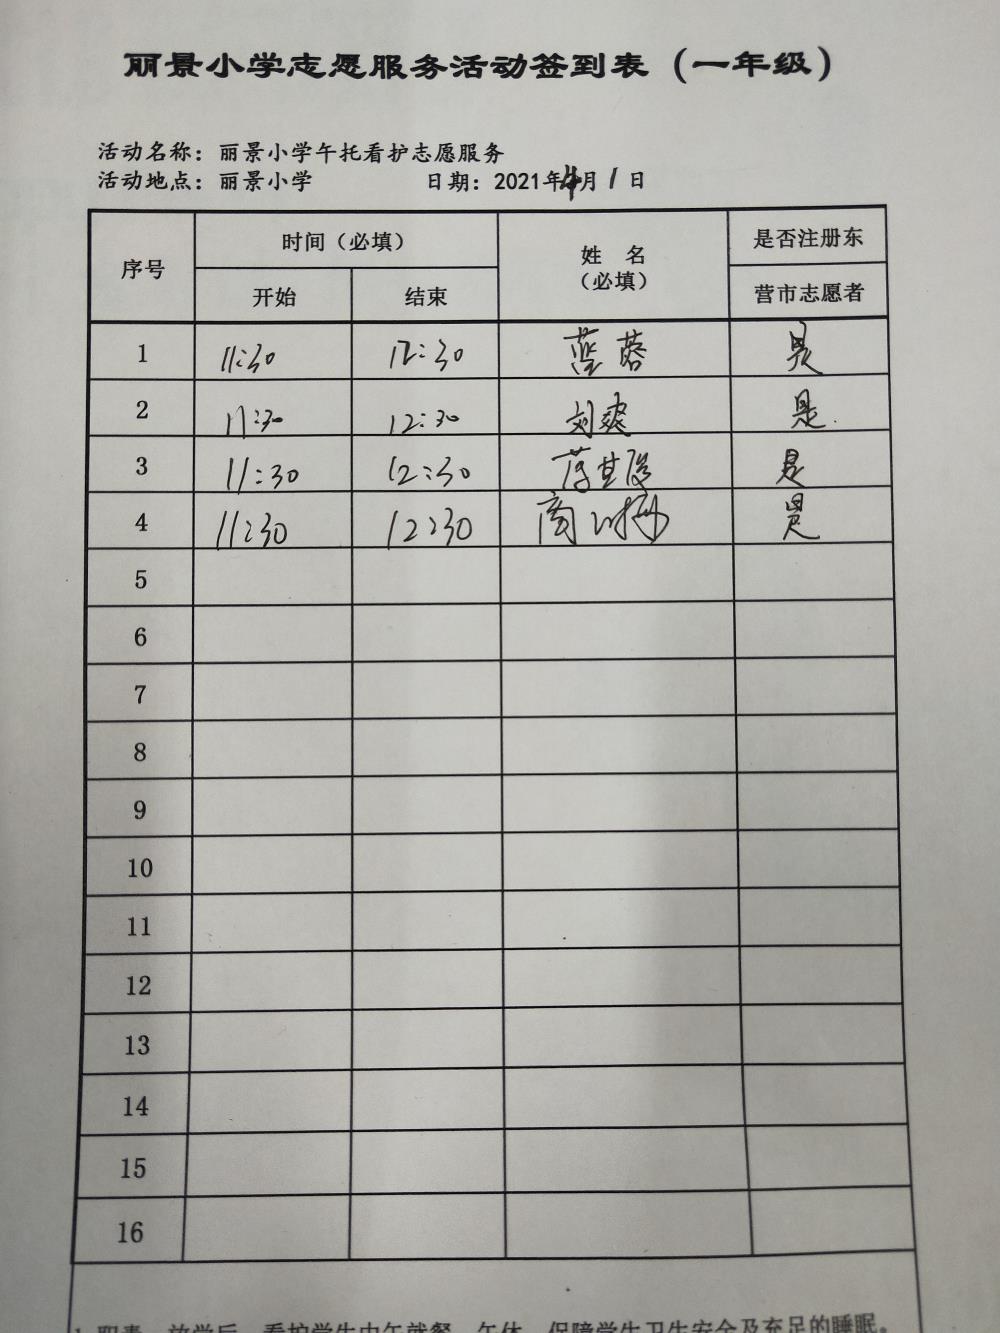 丽景小学志愿服务活动签到表（一年级）
活动名称：丽景小学午托看护志愿服务
活动地点：丽景小学 日期：2021年4月1日
序号 时间（必填） 姓 名（必填） 是否注册东营市志愿者
开始 结束
1 11:30 12:30 蓝蓉 是
2 11:30 12:30 刘爽 是.
3 11:30 12:30 是
4 11:30 12:30 商 是
5
6
7
8
9
10
11
12
13
14
15
16
1.职责：放学后，看护学生中午就餐、午休，保障学生卫生安全及充足的睡眠。